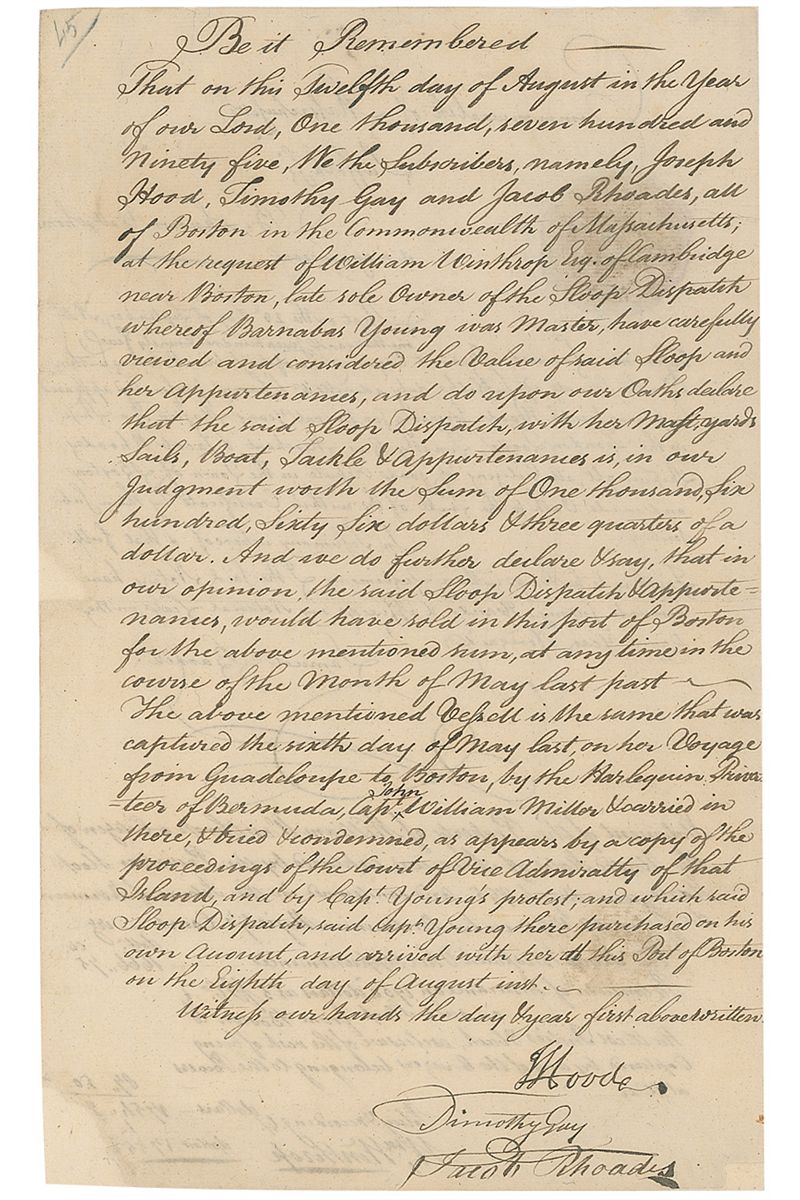 45
Be it Remembered
That on this Twelfth day of August in the Year
of our Lord, One thousand, seven hundred and
Ninety five, We the Subscribers, namely, Joseph
Hood, Timothy Gay and Jacob Rhoades, all
of Boston in the Commonwealth of Massachusetts;
at the request of William Winthrop Esq. of Cambridge
near Boston, late sole Owner of the Sloop Dispatch
whereof Barnabas Young was Master, have carefully
viewed and considered the Value of said Sloop and
her Appurtenances, and do upon our Oaths declare
that the said Sloop Dispatch, with her Mast, yards
Sails, Boat, Tackle & Appurtenances is, in our
Judgment worth the Sum of One thousand, Six
hundred, Sixty Six dollars & three quarters of a
dollar. And we do further declare & say, that in
our opinion, the said Sloop Dispatch & Appurte=
nances, would have sold in this port of Boston
for the above mentioned sum, at any time in the
course of the Month of May last past
The above mentioned Vessell is the same that was
captured the sixth day of May last, on her Voyage
from Guadeloupe to Boston, by the Harlequin Priva-
=teer of Bermuda, Capt. John William Miller & carried in
there, & tried & condemned, as appears by a copy of the
proceedings of the Court of Vice Admiralty of that
Island, and by Capt. Young's protest; and which said
Sloop Dispatch, said Capn. Young there purchased on his
own account, and arrived with her at this Port of Boston
on the Eighth day of August inst.
Witness our hands the day & year first above written.
J Hood
Timothy Gay
Jacob Rhoades